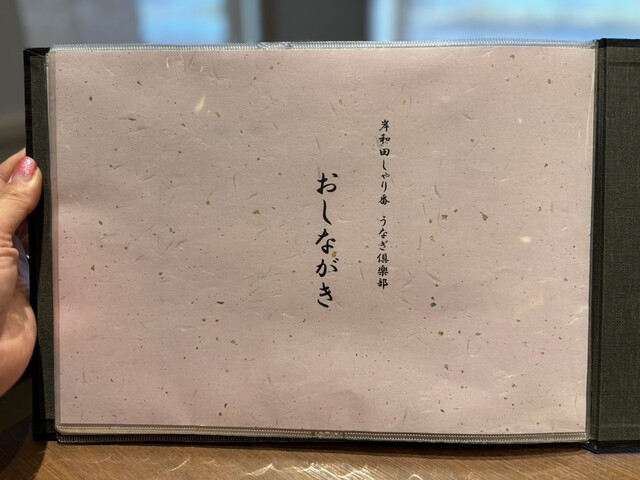 岸和田しゃり番 うなぎ倶楽部
おしながき